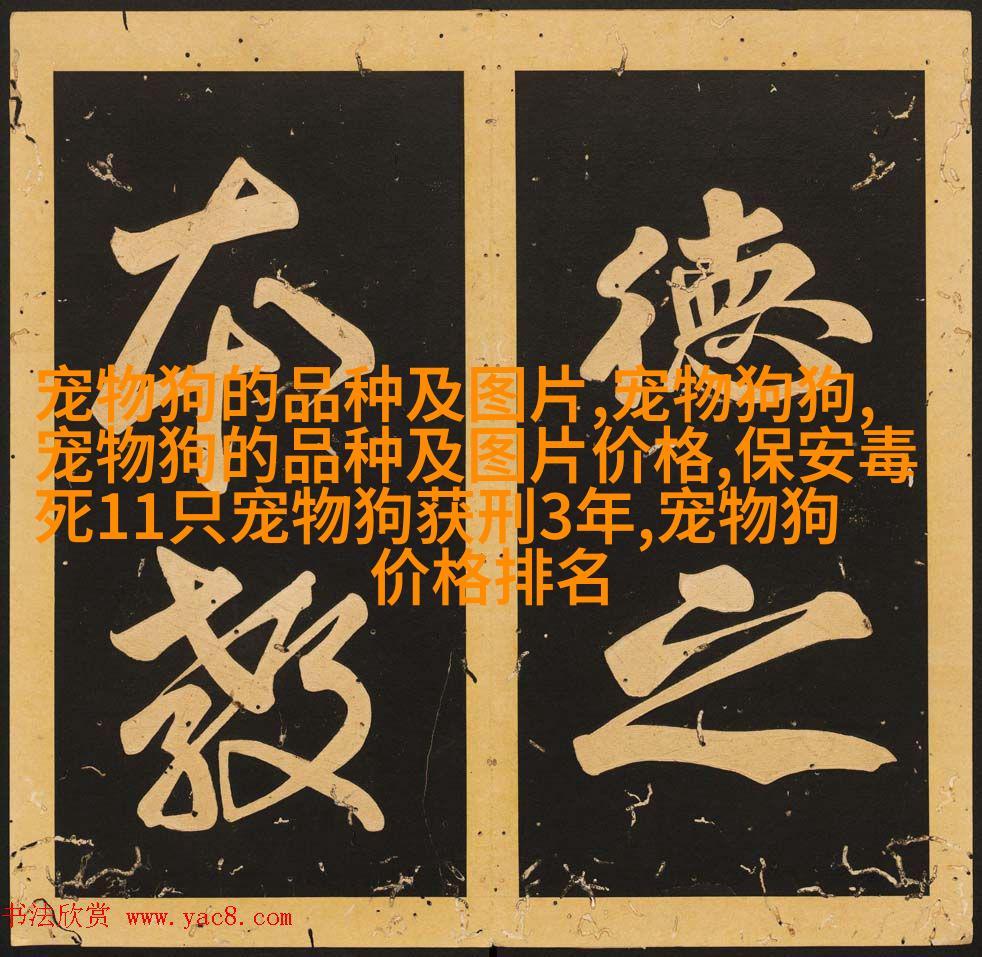 德之
本教
宠物狗的品种及图片,宠物狗狗,
宠物狗的品种及图片价格,保安毒
死11只宠物狗获刑3年,宠物狗
价格排名
书法欣赏 www.yac8.com